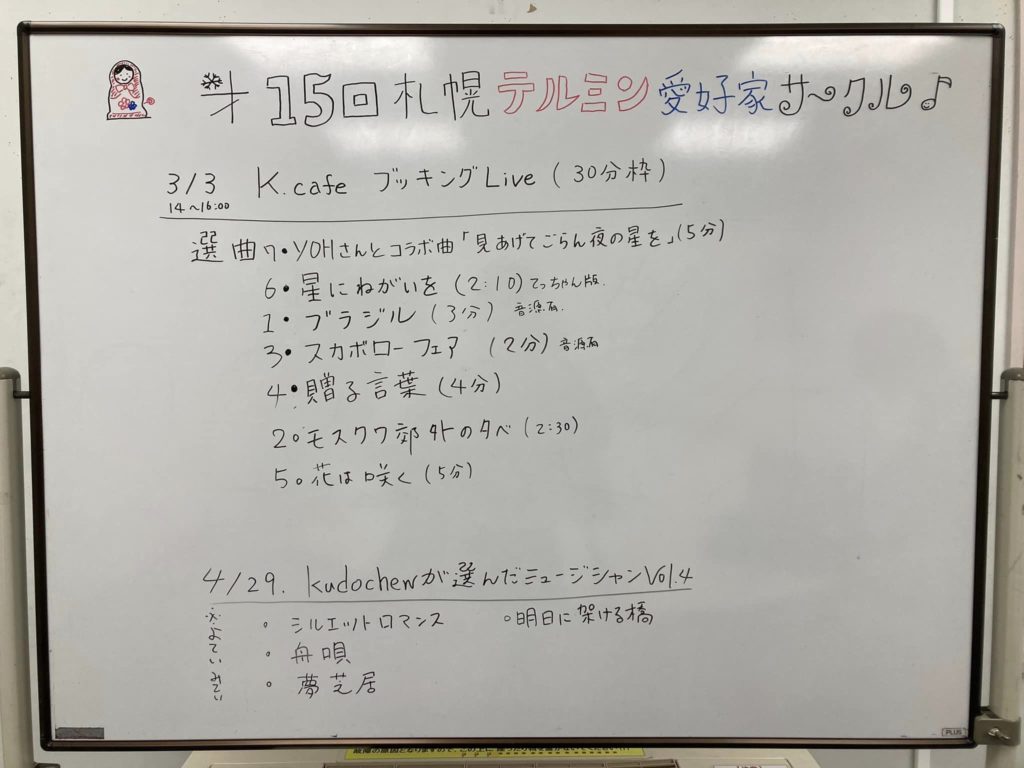 才15回札幌テルミン愛好家サークル♪
3/3 K.cafe ブッキングLive (30分枠)
14～16:00
選曲 7・YOHさんとコラボ曲「見あげてごらん夜の星を」(5分)
6・星にねがいを (2:10) てっちゃん版.
1・ブラジル (3分) 音源有.
3・スカボローフェア (2分) 音源有
4・贈る言葉 (4分)
2。モスクワ郊外の夕べ (2:30)
5。花は咲く (5分)
4/29. kudochenが選んだミュージシャンVol.4
※よていみてい
。シルエットロマンス 。明日に架ける橋
。舟唄
。夢芝居
PLUS